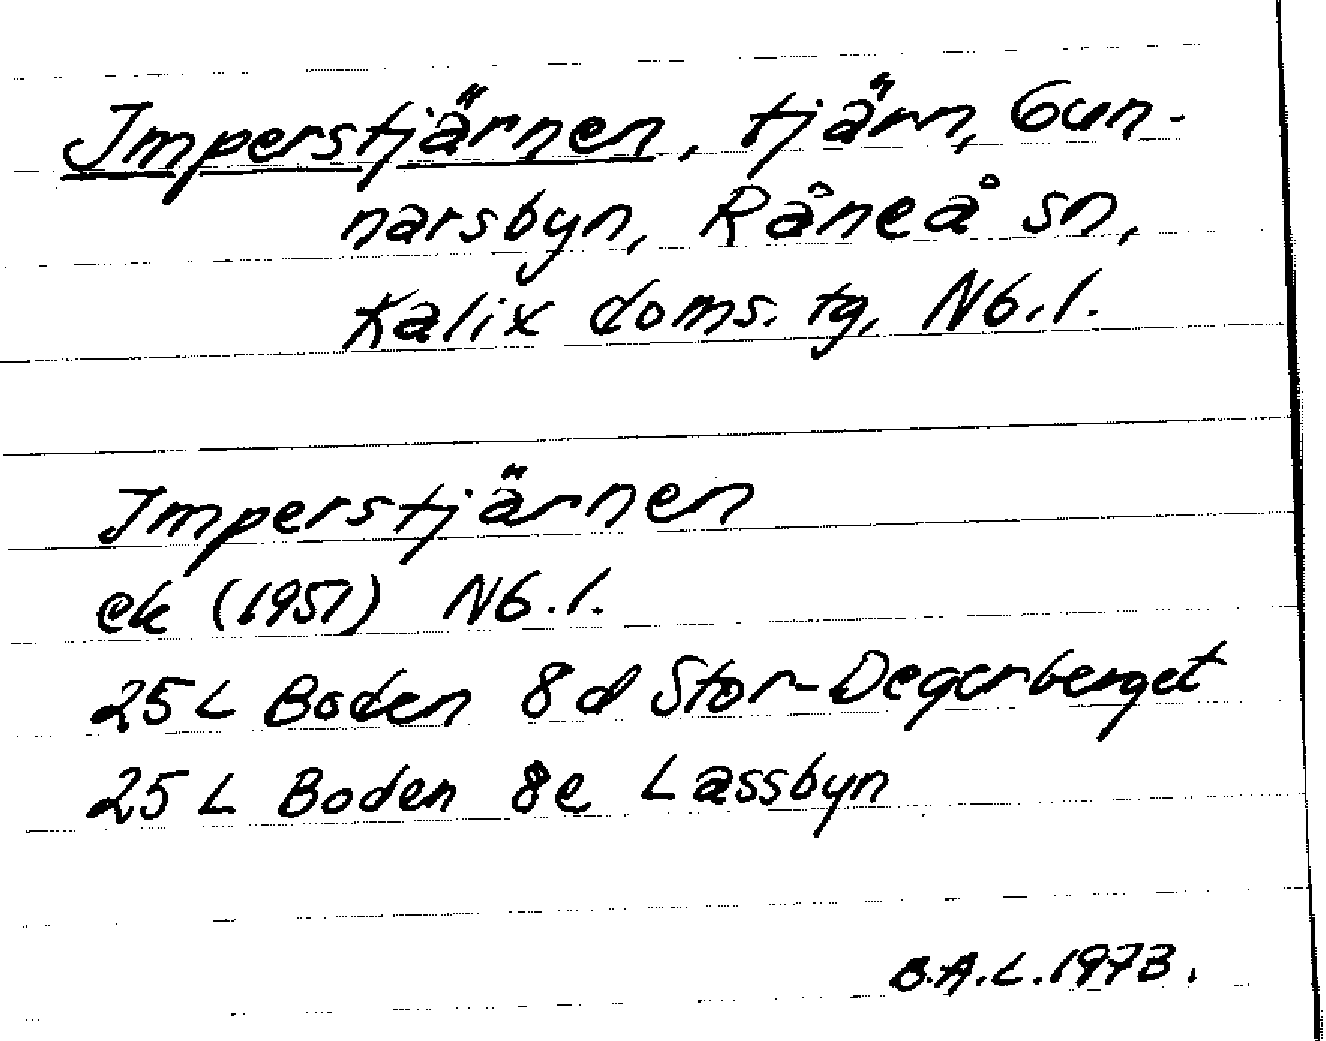 Imperstjärnen, tjärn, Gun-
narsbyn, Råneå sn,
Kalix doms. tg, Nb. l.
Imperstjärnen
ek (1951) Nb. l.
25 L Boden 8d Stor-Degerberget
25 L Boden 8e Lassbyn
B.A.L. 1973.